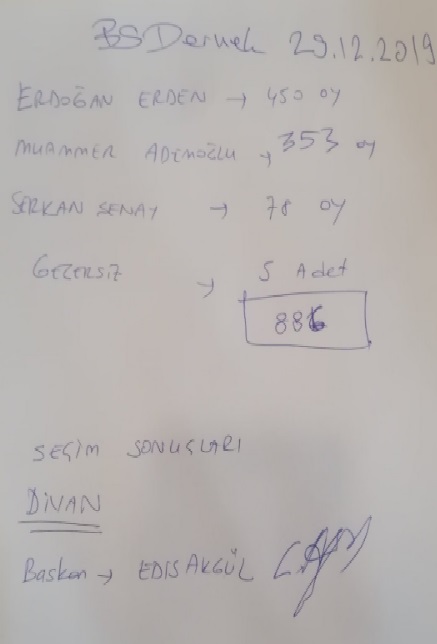 BS Dernek 29.12.2019
ERDOĞAN ERDEN → 450 oy
MUAMMER ADEMOĞLU → 353 oy
SERKAN SENAY → 78 oy
GEÇERSİZ → 5 Adet
886
SEÇİM SONUÇLARI
DİVAN
Başkan → EDİS AKGÜL